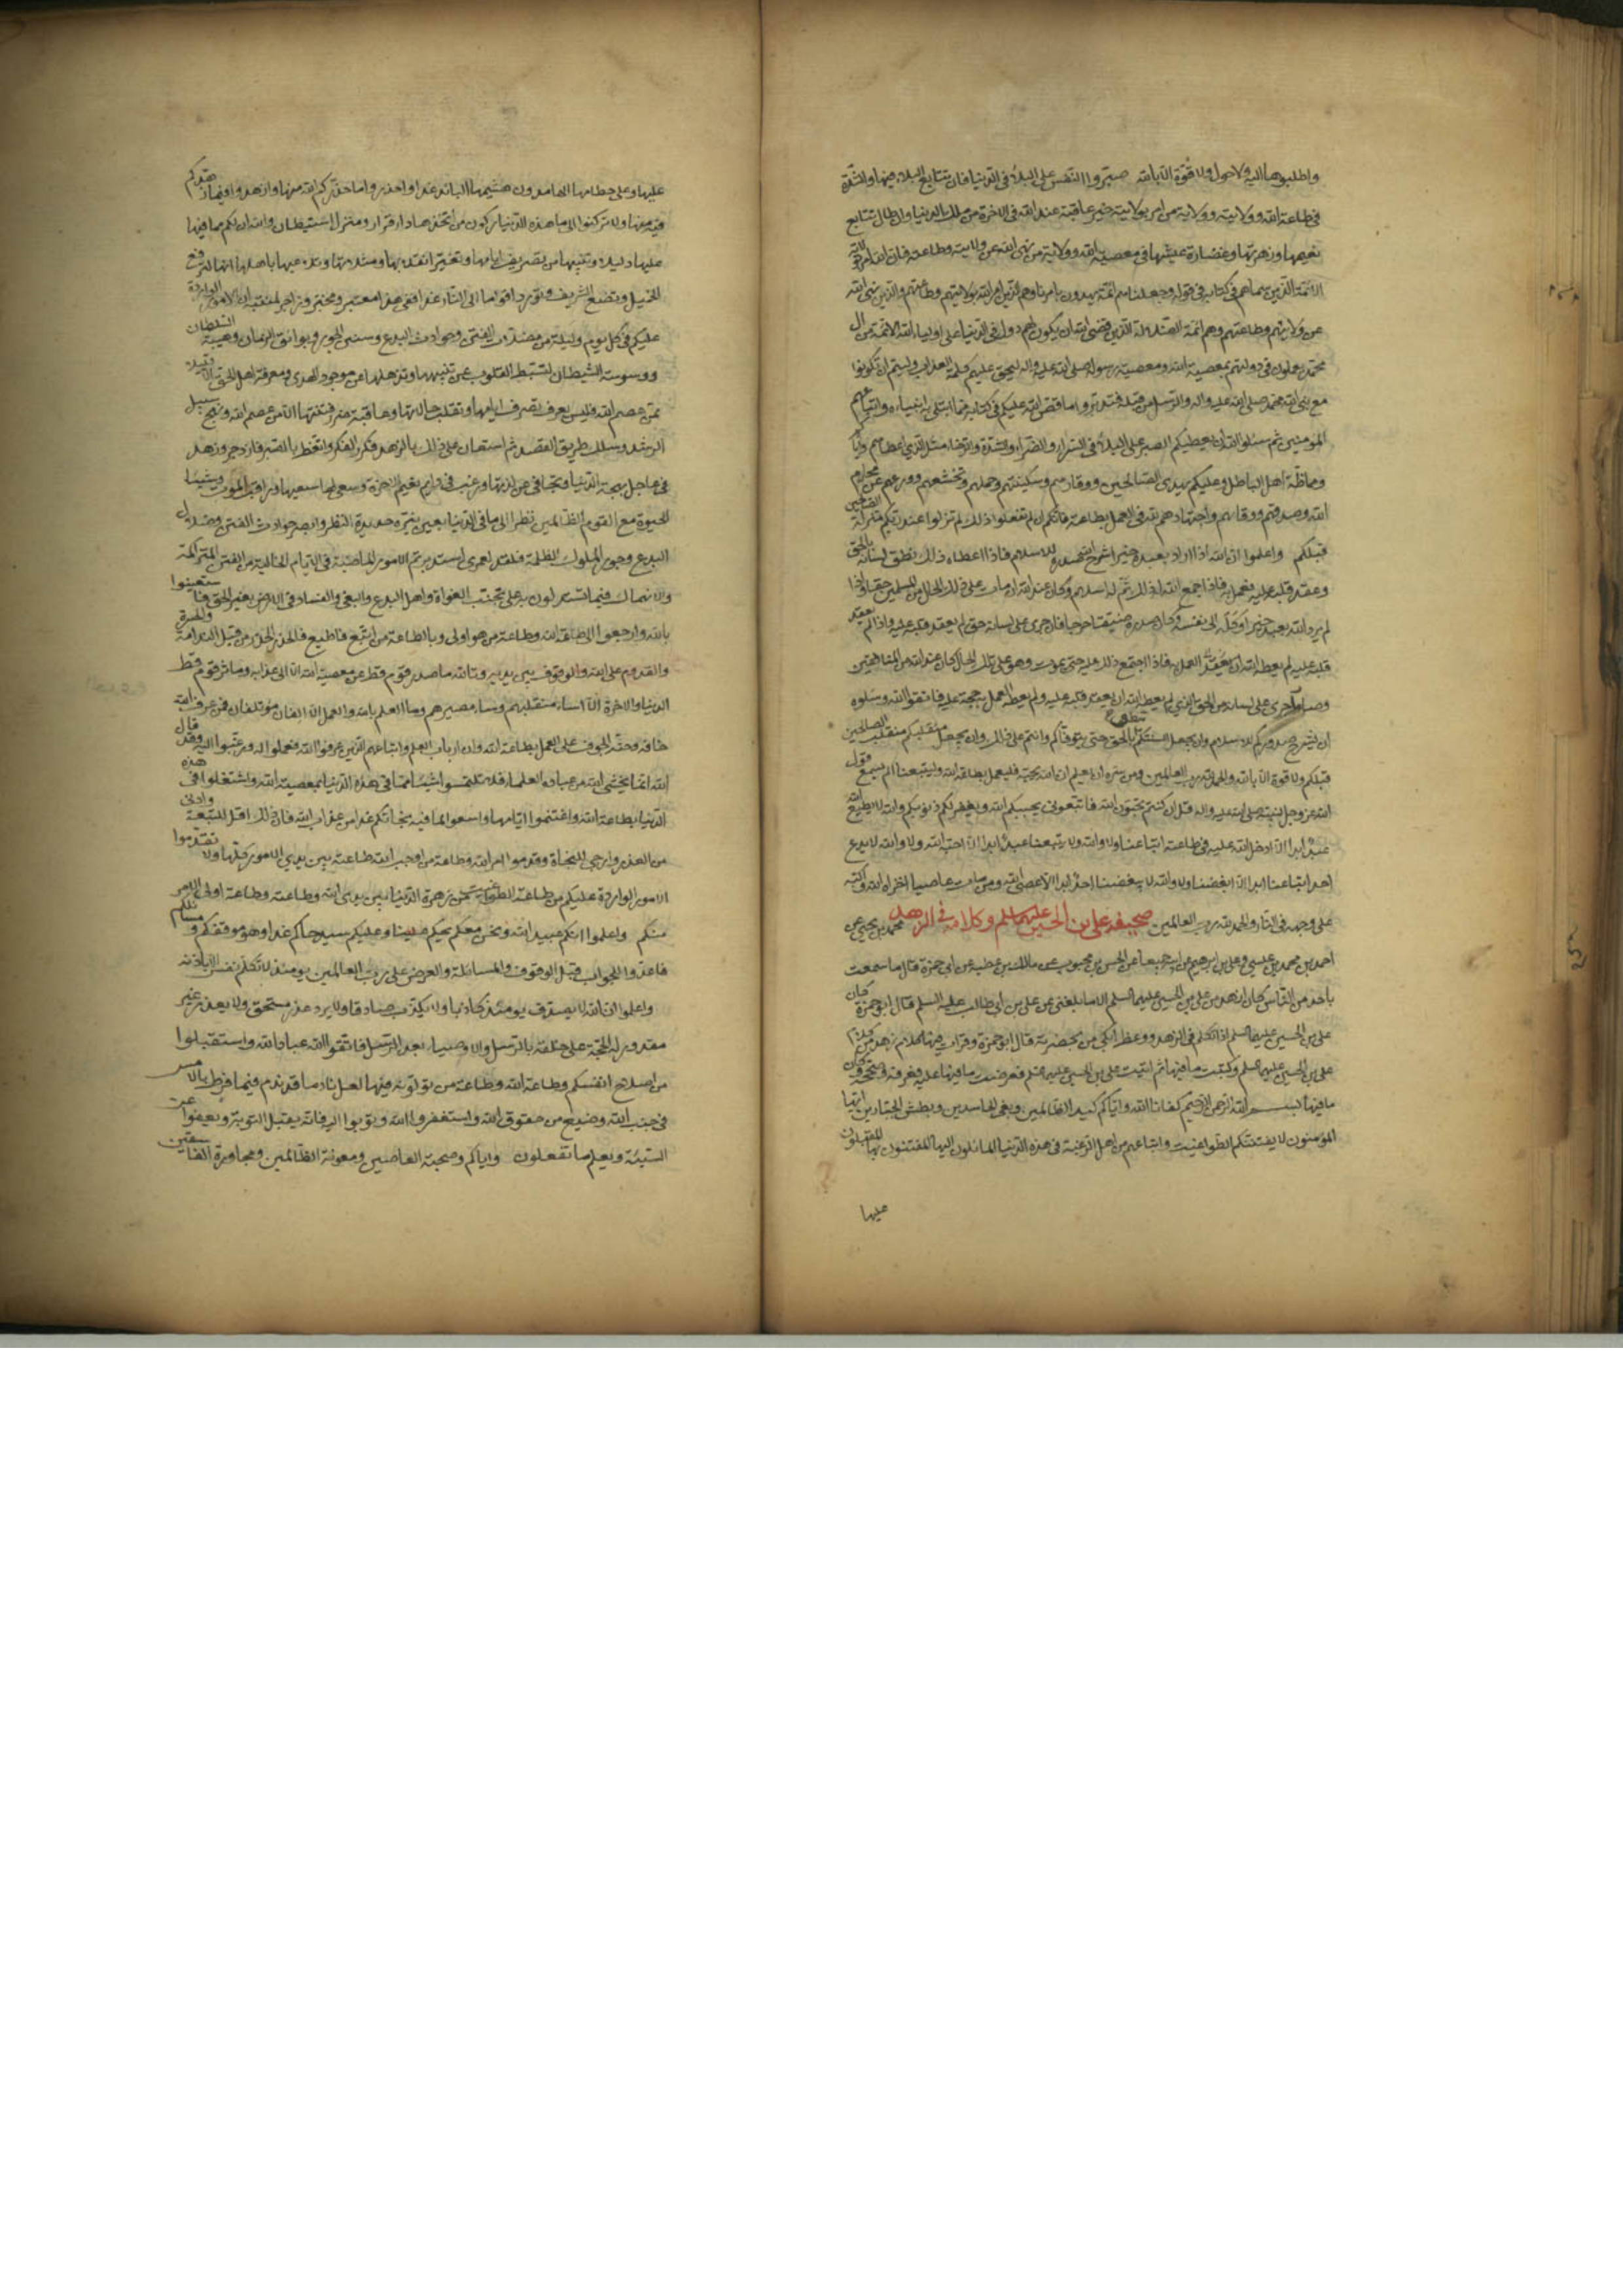 واطلبوها اليه ولا حول ولا قوة الا بالله صبروا النفس على البلاء في الدنيا فان تتابع البلاء فيها والشدة
في طاعة الله وولايته وولاية من امر بولايته خير عاقبة عند الله في الاخرة من ملك الدنيا وان طال تتابع
نعيمها وزهرتها وغضارة عيشها في معصية الله وولاية من نهى الله عن ولايته وطاعته فان الله امر بولاية
الائمة الذين سماهم في كتابه في قوله وجعلناهم ائمة يهدون بامرنا وهم الذين امر الله بولايتهم وطاعتهم والذين نهى الله
عن ولايتهم وطاعتهم وهم ائمة الضلالة الذين قضى الله ان يكون لهم دول في الدنيا على اولياء الله الائمة من آل
محمد يعملون في دولتهم بمعصية الله ومعصية رسوله صلى الله عليه واله ليحق عليهم كلمة العذاب وليتم ان تكونوا
مع نبي الله محمد صلى الله عليه واله والرسل من قبله فتدبروا ما قص الله عليكم في كتابه مما ابتلى به انبياءه واتباعهم
المؤمنين ثم سلوا الله ان يعطيكم الصبر على البلاء في السراء والضراء والشدة والرخاء مثل الذي اعطاهم واياكم
ومماظة اهل الباطل وعليكم بهدى الصالحين ووقارهم وسكينتهم وحلمهم وتخشعهم وورعهم عن محارم
الله وصدقهم ووفائهم واجتهادهم لله في العمل بطاعته فانكم ان لم تفعلوا ذلك لم تنزلوا عند ربكم منزلة الصالحين
قبلكم واعلموا ان الله اذا اراد بعبد خيرا شرح صدره للاسلام فاذا اعطاه ذلك نطق لسانه بالحق
وعقد قلبه عليه فعمل به فاذا جمع الله له ذلك تم له اسلامه وكان عند الله ان مات على ذلك الحال من المسلمين حقا واذا
لم يرد الله بعبد خيرا وكله الى نفسه وكان صدره ضيقا حرجا فان جرى على لسانه حق لم يعقد قلبه عليه واذا لم يعقد
قلبه عليه لم يعطه الله العمل به فاذا اجتمع ذلك عليه حتى يموت وهو على تلك الحال كان عند الله من المنافقين
وصار ما جرى على لسانه من الحق الذي لم يعطه الله ان يعقد قلبه عليه ولم يعطه العمل به حجة عليه فاتقوا الله وسلوه
ان يشرح صدوركم للاسلام وان يجعل السنتكم تنطق بالحق حتى يتوفاكم وانتم على ذلك وان يجعل منقلبكم منقلب الصالحين
قبلكم ولا قوة الا بالله والحمد لله رب العالمين ومن سره ان يعلم ان الله يحبه فليعمل بطاعة الله وليتبعنا الم يسمع قول
الله عز وجل لنبيه صلى الله عليه واله قل ان كنتم تحبون الله فاتبعوني يحببكم الله ويغفر لكم ذنوبكم والله لا يطيع الله
عبد ابدا الا ادخل الله عليه في طاعته اتباعنا ولا والله لا يتبعنا عبد ابدا الا احبه الله ولا والله لا يدع
احد اتباعنا ابدا الا ابغضنا ولا والله لا يبغضنا احد ابدا الا عصى الله ومن مات عاصيا اخزاه الله واكبه
على وجهه في النار والحمد لله رب العالمين صحيفة على بن الحسين عليهما السلم وكلامه في الزهد محمد بن يحيى عن
احمد بن محمد بن عيسى وعلى بن ابرهيم عن ابيه جميعا عن الحسن بن محبوب عن مالك بن عطية عن ابي حمزة قال ما سمعت
باحد من الناس كان ازهد من على بن الحسين عليهما السلم الا ما بلغني عن على بن ابي طالب عليه السلم قال ابو حمزة كان
على بن الحسين عليهما السلم اذا تكلم في الزهد ووعظ ابكى من بحضرته قال ابو حمزة وقرات صحيفة فيها كلام زهد من كلام
على بن الحسين عليهما السلم وكتبت ما فيها ثم اتيت على بن الحسين عليهما السلم فعرضت ما فيها عليه فعرفه وصححه وكان
ما فيها بسم الله الرحمن الرحيم كفانا الله واياكم كيد الظالمين وبغى الحاسدين وبطش الجبارين ايها
المؤمنون لا يفتننكم الطواغيت واتباعهم من اهل الرغبة في هذه الدنيا المائلون اليها المفتتنون بها المقبلون
عليها
عليها وعلى حطامها الهامد وهشيمها البائد غدا واحذروا ما حذركم الله منها وازهدوا فيما زهدكم
فيه منها ولا تركنوا الى ما هذه الدنيا ركون من اتخذها دار قرار ومنزل استيطان والله ان لكم مما فيها
عليها دليلا وتنبيها من تصريف ايامها وتغير انقلابها ومثلاتها وتلاعبها باهلها انها لترفع
الخميل وتضع الشريف وتورد اقواما الى النار غدا ففي هذا معتبر ومختبر وزاجر لمنتبه ان الامور الواردة
عليكم في كل يوم وليلة من مضلات الفتن وحوادث البدع وسنن الجور وبوائق الزمان وهيبة السلطان
ووسوسة الشيطان لتثبط القلوب عن تنبيهها وتذهلها عن موجود الهدى ومعرفة اهل الحق الا قليلا
ممن عصم الله فليس يعرف تصرف ايامها وتقلب حالاتها وعاقبة ضرر فتنتها الا من عصم الله ونهج سبيل
الرشد وسلك طريق القصد ثم استعان على ذلك بالزهد فكرر الفكر واتعظ بالصبر فازدجر وزهد
في عاجل بهجة الدنيا وتجافى عن لذتها ورغب في دايم نعيم الاخرة وسعى لها سعيها وراقب الموت وشنا
الحيوة مع القوم الظالمين نظر الى ما في الدنيا بعين نيرة حديدة النظر وابصر حوادث الفتن وضلال
البدع وجور الملوك الظلمة فلقد لعمري استدبرتم الامور الماضية في الايام الخالية من الفتن المتراكمة
والانهماك فيما تستدلون به على تجنب الغواة واهل البدع والبغى والفساد في الارض بغير الحق فاستعينوا
بالله وارجعوا الى طاعة الله وطاعة من هو اولى بالطاعة ممن اتبع فاطيع فالحذر الحذر من قبل الندامة والحسرة
والقدوم على الله والوقوف بين يديه وتالله ما صدر قوم قط عن معصية الله الا الى عذابه وما اثر قوم قط
الدنيا والاخرة الا ساء منقلبهم وساء مصيرهم وما العلم بالله والعمل الا الفان مؤتلفان فمن عرف الله
خافه وحثه الخوف على العمل بطاعة الله وان ارباب العلم واتباعهم الذين عرفوا الله فعملوا له ورغبوا اليه وقد قال
الله انما يخشى الله من عباده العلماء فلا تلتمسوا شيئا مما في هذه الدنيا بمعصية الله واشتغلوا في هذه
الدنيا بطاعة الله واغتنموا ايامها واسعوا لما فيه نجاتكم غدا من عذاب الله فان ذلك اقل للتبعة وادنى
من العذر وارجى للنجاة وقدموا امر الله وطاعة من اوجب الله طاعته بين يدي الامور كلها ولا تقدموا
الامور الواردة عليكم من طاعة الطواغيت من زهرة الدنيا بين يدى الله وطاعته وطاعة اولى الامر
منكم واعلموا انكم عبيد الله ونحن معكم يحكم علينا وعليكم سيد حاكم غدا وهو موقفكم ومسائلكم
فاعدوا الجواب قبل الوقوف والمسائلة والعرض على رب العالمين يومئذ لا تكلم نفس الا باذنه
واعلموا ان الله لا يصدق يومئذ كاذبا ولا يكذب صادقا ولا يرد عذر مستحق ولا يعذر غير
معذور له الحجة على خلقه بالرسل والاوصياء بعد الرسل فاتقوا الله عباد الله واستقبلوا
من اصلاح انفسكم وطاعة الله وطاعة من تولونه فيها لعل نادما قد ندم فيما فرط بالامس
في جنب الله وضيع من حقوق الله واستغفروا الله وتوبوا اليه فانه يقبل التوبة ويعفوا عن
السيئة ويعلم ما تفعلون واياكم وصحبة العاصين ومعونة الظالمين ومجاورة الفاسقين